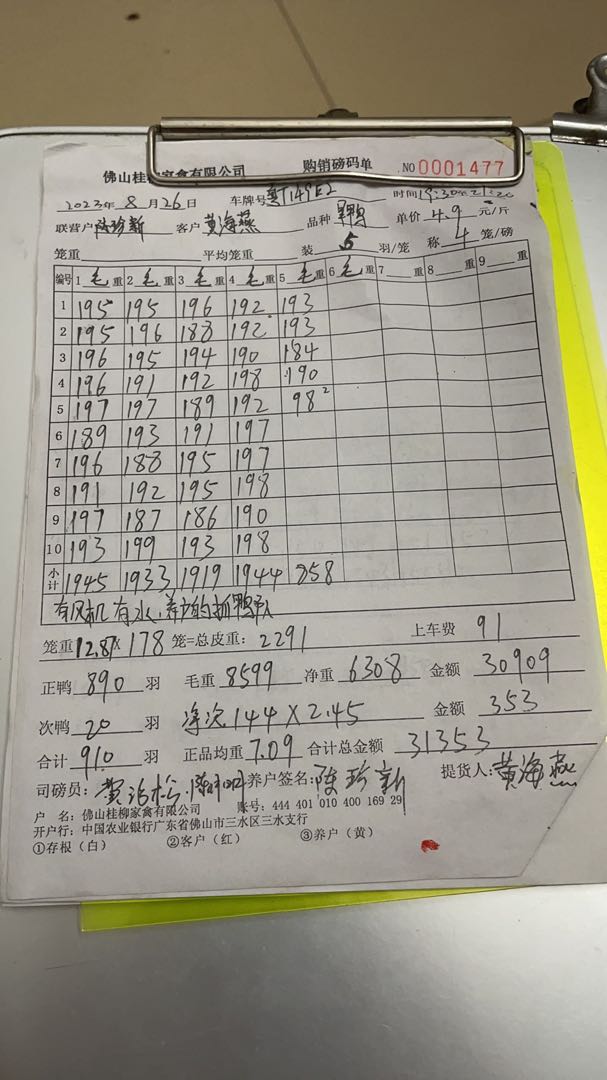 佛山桂柳家禽有限公司 购销磅码单 NO 0001477
2023年8月26日 车牌号 粤T149E2 时间19:30
联营户 陈珍新 客户 黄海燕 品种 单价 4.9 元/斤
笼重 平均笼重 装 5 羽/笼 称 4 笼/磅
编号 1 毛 重 2 毛 重 3 毛 重 4 毛 重 5 毛 重 6 毛 重 7 重 8 重 9 重
1 195 195 196 192 193
2 195 196 188 192 193
3 196 195 194 190 184
4 196 191 192 198 190
5 197 197 189 192 98 2
6 189 193 191 197
7 196 188 195 197
8 191 192 195 198
9 197 187 186 190
10 193 199 193 198
小计 1945 1933 1919 1944 858
有风机 有水，养户的抓鸭队
笼重 12.87 x 178 笼=总皮重: 2291 上车费 91
正鸭 890 羽 毛重 8599 净重 6308 金额 30909
次鸭 20 羽 净次 144 X 2.45 金额 353
合计 910 羽 正品均重 7.09 合计总金额 31353
司磅员: 养户签名: 陈珍新 提货人: 黄海燕
户 名: 佛山桂柳家禽有限公司 账号: 444 401 010 400 169 29
开户行: 中国农业银行广东省佛山市三水区三水支行
①存根（白） ②客户（红） ③养户（黄）